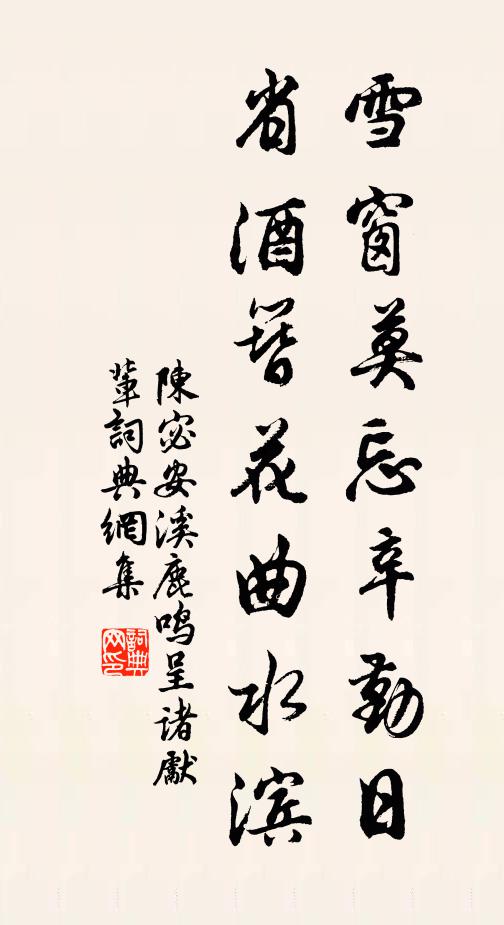 雪窗莫忘辛勤日
省酒簪花曲水滨
陳宓安溪鹿鸣呈諸獻
輩詞典網集
詞典网印